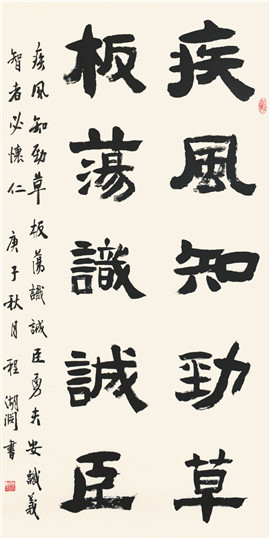 疾風知勁草
板蕩識誠臣
疾風知勁草板蕩識誠臣勇夫安識義
智者必懷仁 庚子秋月 程湖 書